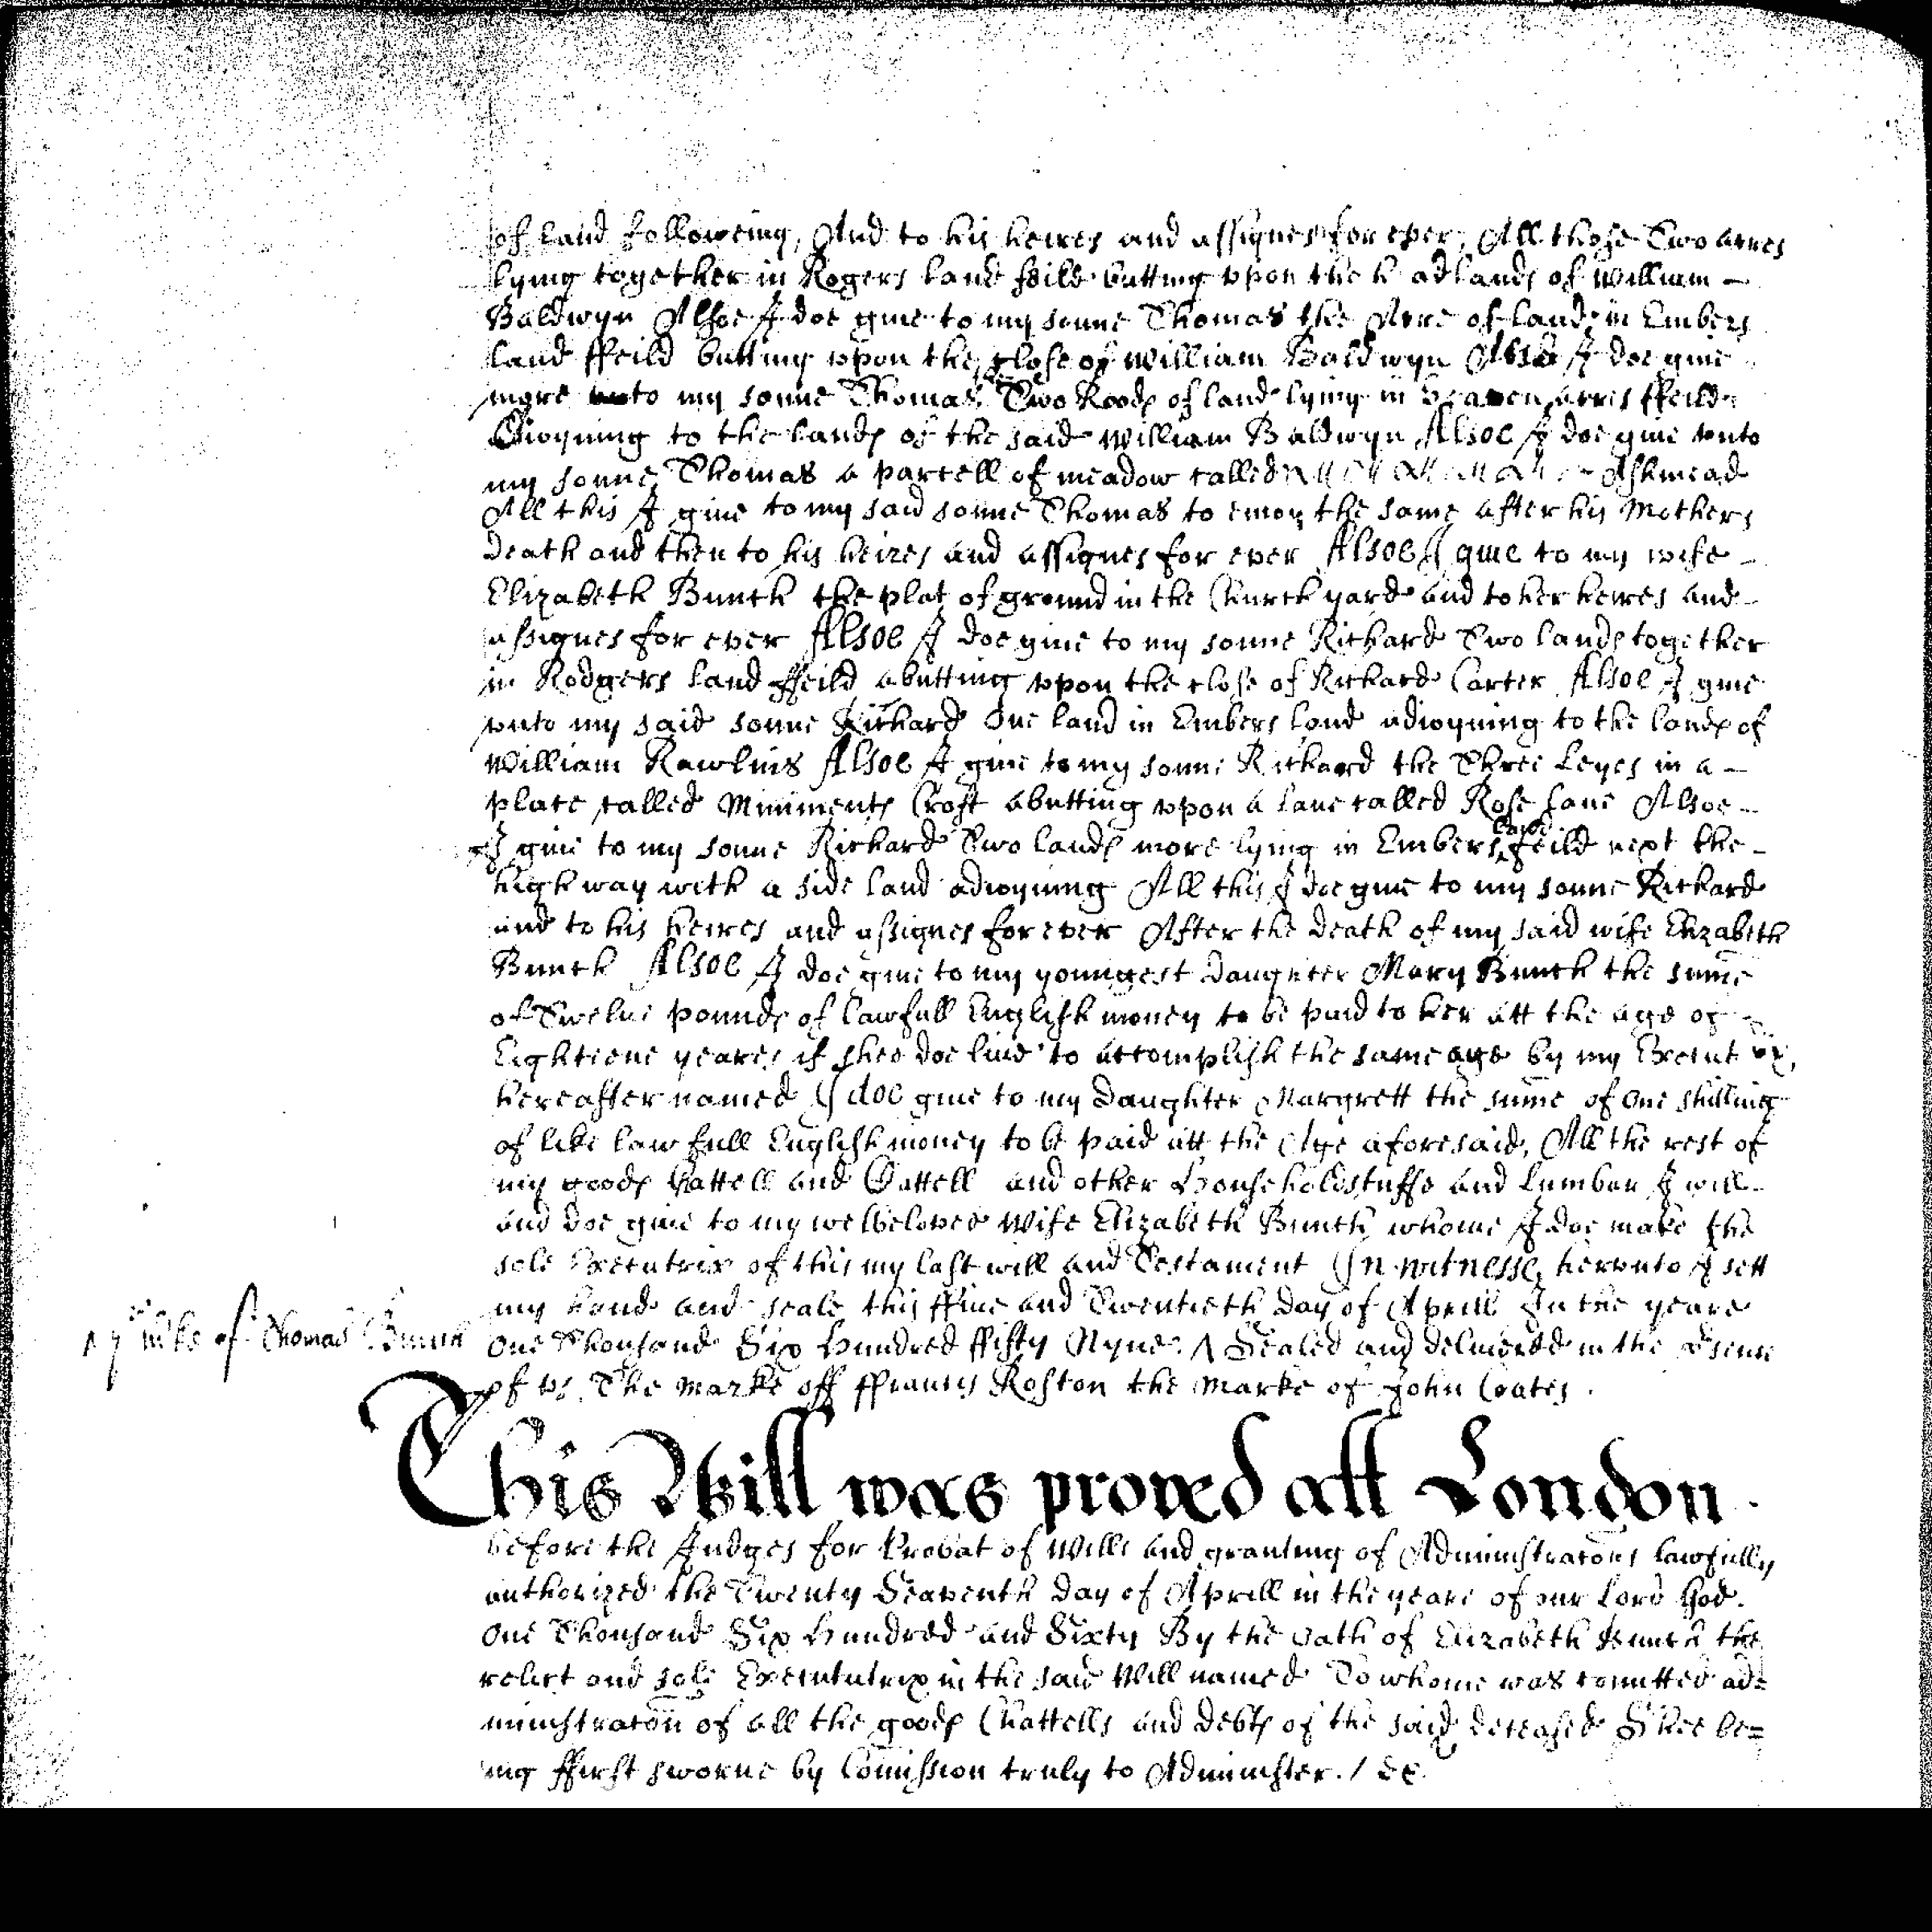 of land followeing, And to his heires and assignes for ever, All those Two acres
lying together in Rogers land feild butting vpon the h adlands of William -
Baldwyn Alsoe I doe giue to my sonne Thomas the Acre of land in Embers
land ffeild butting vpon the close of William Baldwyn Alsoe I doe giue
more vnto my sonne Thomas Two Roods of land lying in Seaven acres ffeild
Adioyning to the lands of the said William Baldwyn Alsoe I doe giue vnto
my sonne Thomas a parcell of meadow called Ashmead
All this I giue to my said sonne Thomas to enioy the same after his Mothers
death and then to his heires and assignes for ever Alsoe I giue to my wife -
Elizabeth Bunch the plat of ground in the Church yard and to her heires and -
assignes for ever Alsoe I doe giue to my sonne Richard Two lands together
in Rodgers land ffeild abutting vpon the close of Richard Carter Alsoe I giue
vnto my said sonne Richard One land in Embers land adioyning to the lands of
William Rawlins Alsoe I giue to my sonne Richard the Three Leyes in a -
place called Miniments Croft abutting vpon a lane called Rose lane Alsoe -
I giue to my sonne Richard Two lands more lying in Embers land feild next the -
high way with a side land adioyning All this I doe giue to my sonne Richard
and to his heires and assignes for ever After the death of my said wife Elizabeth
Bunch Alsoe I doe giue to my youngest daughter Mary Bunch the sume
of Twelue pounds of lawfull English money to be paid to her att the age of
Eightiene yeares if shee doe liue to accomplish the same age by my Executrix,
hereafter named I doe giue to my daughter Margrett the sume of One shilling
of like lawfull English money to be paid att the Age aforesaid, All the rest of
my goods Cattell and Cattell and other Householdstuffe and Lumber I will -
and doe giue to my welbeloved Wife Elizabeth Bunch whome I doe make the
sole Executrix of this my last will and Testament In witnesse hervnto I sett
my hand and seale this ffiue and Twentieth day of Aprill In the yeare
One Thousand Six Hundred ffifty Nyne: Sealed and deliuered in the
of vs The marke off ffrancis Roston the marke of John Coates.
of Thomas Bunch
This Will was proved att London.
before the Judges for Probat of Wills and granting of Administracons lawfully
authorized the Twenty Seaventh day of Aprill in the yeare of our Lord God.
One Thousand Six Hundred and Sixty By the oath of Elizabeth Bunch the
relict and sole Execututrix in the said Will named To whome was comitted ad=
ministracon of all the goods Chattells and debts of the said deceased Shee be=
ing ffirst sworne by Comission truly to Administer. / &c.